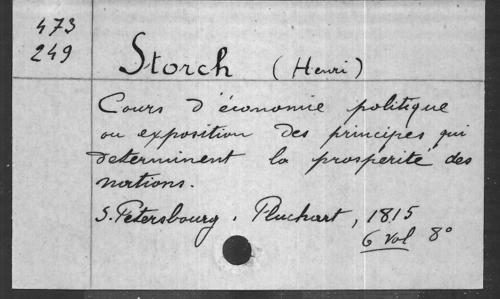 473
249
Storch (Henri)
Cours d'économie politique
ou exposition des principes qui
determinent la prosperité des
nations.
S. Pétersbourg. Pluchart, 1815
6 vol 8°